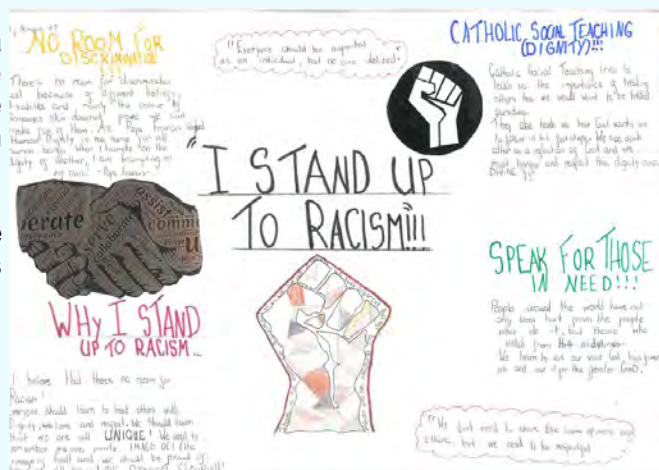 NO ROOM FOR
DISCRIMINATION
!!!
There's no room for discrimination
just because of different beliefs,
disabilities and the colour of
someones skin doesn't you can
make fun of them. As Pope Francis
Human Dignity is the same for all
human beings when I trample on the
dignity of another, I am trampling on
my own. - Pope Francis
"Everyone should be respected
as an individual, but no one idolized."
CATHOLIC SOCIAL TEACHING
(DIGNITY)!!!
Catholic Social Teaching tries to
teach us the importance of treating
others how we would want to be treated
ourselves.
They also teach us how God wants us
to follow in his footsteps. We see each
other as a reflection of God and we
must honour and respect this dignity as a
DIVINE
"I STAND UP
TO RACISM!!!
erate
serve
collaborate
assist
commu
WHY I STAND
UP TO RACISM...
I believe that there's no room for
Racism!
Everyone should learn to treat others with
Dignity, and respect. We should learn
that we are all UNIQUE! We need to
remember you are made IMAGO DEI (the
image of God) and we should be proud of
SPEAK FOR THOSE
IN NEED!!!
People around the world have not
only been hurt from the people
who do it, but those who
watch from the sidelines.
We need to use our voice God has given
us and use it for the greater Good.
"We don't need to share the same opinions as
others, but we need to be respectful."